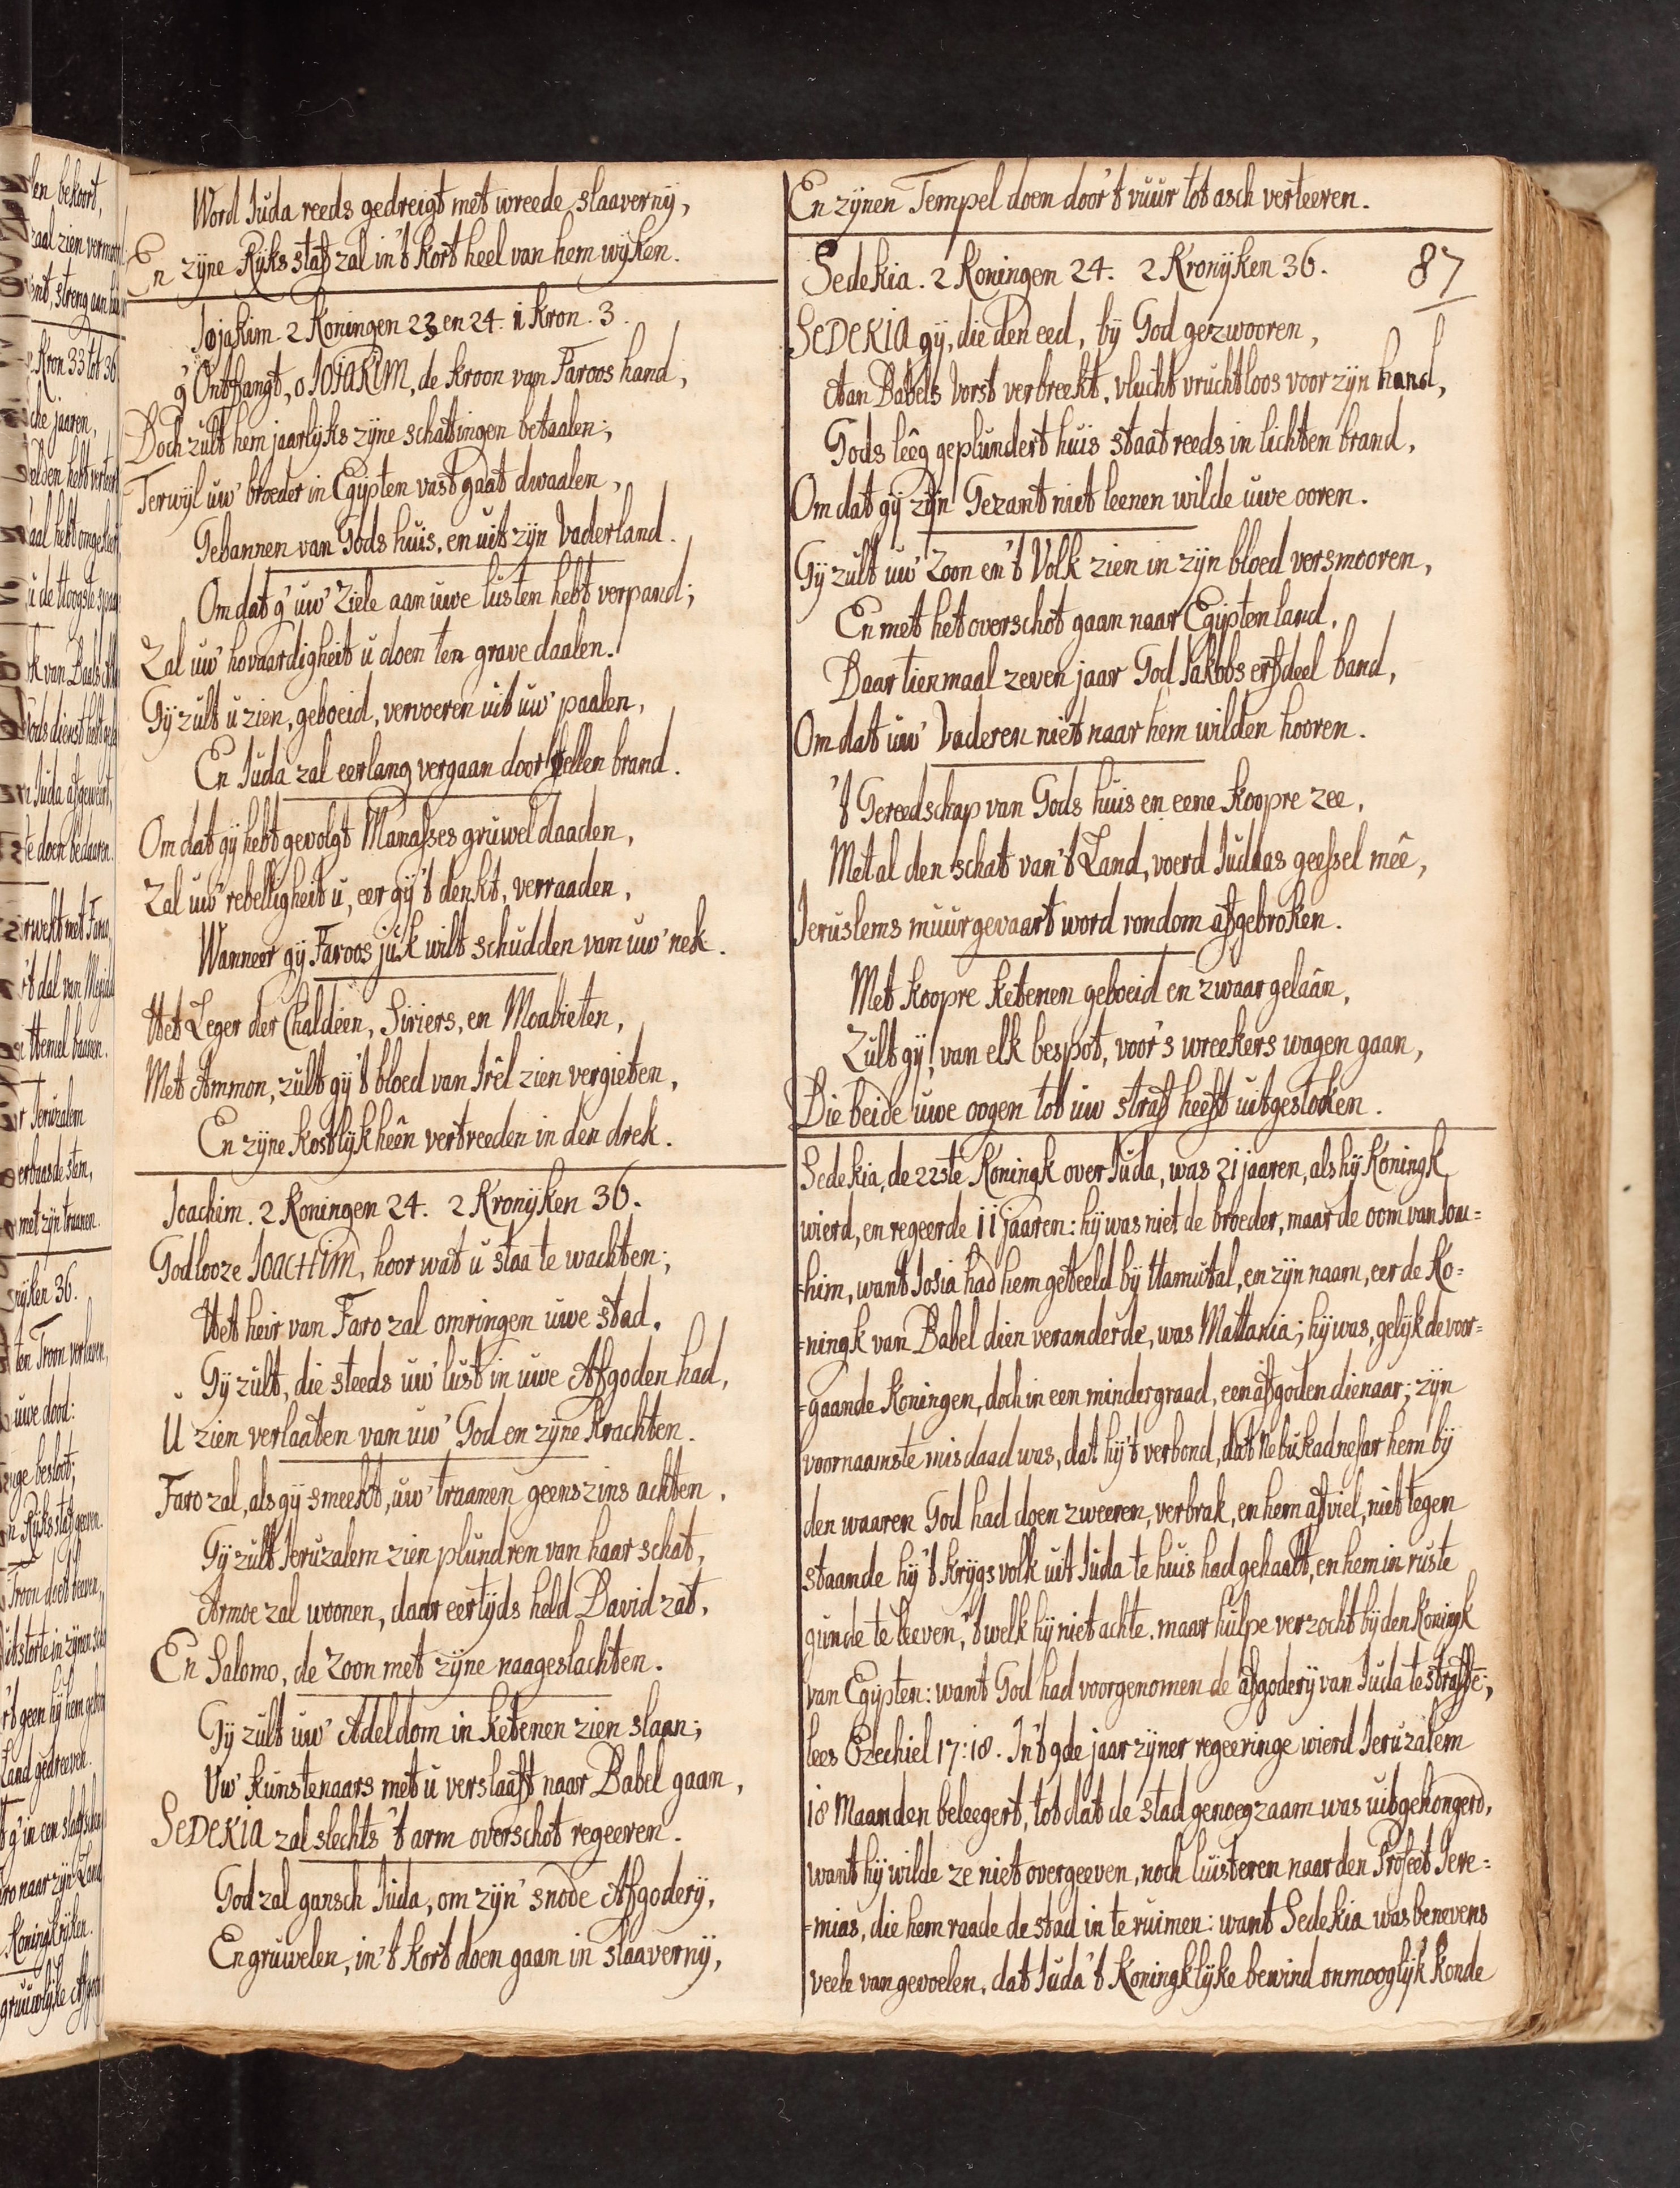 Word Juda reeds gedreigt met wreede slaaverny,
En zyne Ryks staf zal in 't kort heel van hem wyken.
Jojakim. 2 Koningen 23 en 24. 1 Kron. 3.
g' Ontfangt, o JOJAKIM, de kroon van Faroos hand,
Doch zult hem jaarlyks zyne schattingen betaalen;
Terwyl uw' broeder in Egypten vast gaat dwaalen,
Gebannen van Gods huis, en uit zyn Vaderland.
Om dat g' uw' ziele aan uwe lusten hebt verpand;
Zal uw' hovaardigheit u doen ten grave daalen.
Gy zult u zien, geboeid, vervoeren uit uw' paalen,
En Juda zal eerlang vergaan door fellen brand.
Om dat gy hebt gevolgt Manasses gruweldaaden,
Zal uw' rebelligheit u, eer gy 't denkt, verraaden,
Wanneer gy Faroos juk wilt schudden van uw' nek.
Het Leger der Chaldeen, Siriers, en Moabieten,
Met Ammon, zult gy 't bloed van Irêl zien vergieten,
En zyne kostlykheên vertreeden in den drek.
Joachim. 2 Koningen 24. 2 Kronyken 36.
Godlooze JOACHIM, hoor wat u staa te wachten;
Het heir van Faro zal omringen uwe stad.
Gy zult, die steeds uw' lust in uwe Afgoden had,
U zien verlaaten van uw' God en zyne krachten.
Faro zal, als gy smeekt, uw' traanen geenszins achten.
Gy zult Jeruzalem zien plundren van haar schat,
Armoe zal woonen, daar eertyds held David zat,
En Salomo, de zoon met zyne naageslachten.
Gy zult uw' Adeldom in ketenen zien slaan;
Uw' kunstenaars met u verslaaft naar Babel gaan,
SEDEKIA zal slechts 't arm overschot regeeren.
God zal gansch Juda, om zyn' snode Afgodery,
En gruwelen, in 't kort doen gaan in slaaverny,
En zynen Tempel doen door 't vuur tot asch verteeren.
Sedekia. 2 Koningen 24. 2 Kronyken 36. 87
SEDEKIA gy, die den eed, by God gezwooren,
Aan Babels Vorst verbreekt, vlucht vruchtloos voor zyn hand,
Gods lêeg geplundert huis staat reeds in lichten brand,
Om dat gy zyn Gezant niet leenen wilde uwe ooren.
Gy zult uw' Zoon en 't Volk zien in zyn bloed versmooren,
En met het overschot gaan naar Egyptenland,
Daar tienmaal zeven jaar God Jakobs erfdeel band,
Om dat uw' Vaderen niet naar hem wilden hooren.
't Gereedschap van Gods huis en eene koopre zee,
Met al den schat van 't Land, voerd Juddas geessel mêe,
Jeruslems muurgevaart word rondom afgebroken.
Met koopre ketenen geboeid en zwaar gelâan,
Zult gy! van elk bespot, voor 's wreekers wagen gaan,
Die beide uwe oogen tot uw straf heeft uitgestoken.
Sedekia, de 22ste Koningk over Juda, was 21 jaaren, als hy Koningk
wierd, en regeerde 11 jaaren: hy was niet de broeder, maar de oom van Joa=
=him, want Josia had hem geteeld by Hamutal, en zyn naam, eer de Ko=
=ningk van Babel dien veranderde, was Mattania; hy was, gelyk de voor=
=gaande Koningen, doch in een minder graad, een afgoden dienaar; zyn
voornaamste misdaad was, dat hy 't verbond, dat Nebukadnesar hem by
den waaren God had doen zweeren, verbrak, en hem afviel, niet tegen
staande hy 't krygs volk uit Juda te huis had gehaalt, en hem in ruste
gunde te leeven, 't welk hy niet achte, maar hulpe verzocht by den Koningk
van Egypten: want God had voorgenomen de afgodery van Juda te straffē;
lees Ezechiel 17:18. In 't 9de jaar zyner regeeringe wierd Jeruzalem
18 Maanden beleegert, tot dat de stad genoegzaam was uitgehongerd,
want hy wilde ze niet overgeeven, noch luisteren naar den Profeet Jere=
=mias, die hem raade de stad in te ruimen: want Sedekia was benevens
veele van gevoelen, dat Juda 't Koningklyke bewind onmooglyk konde